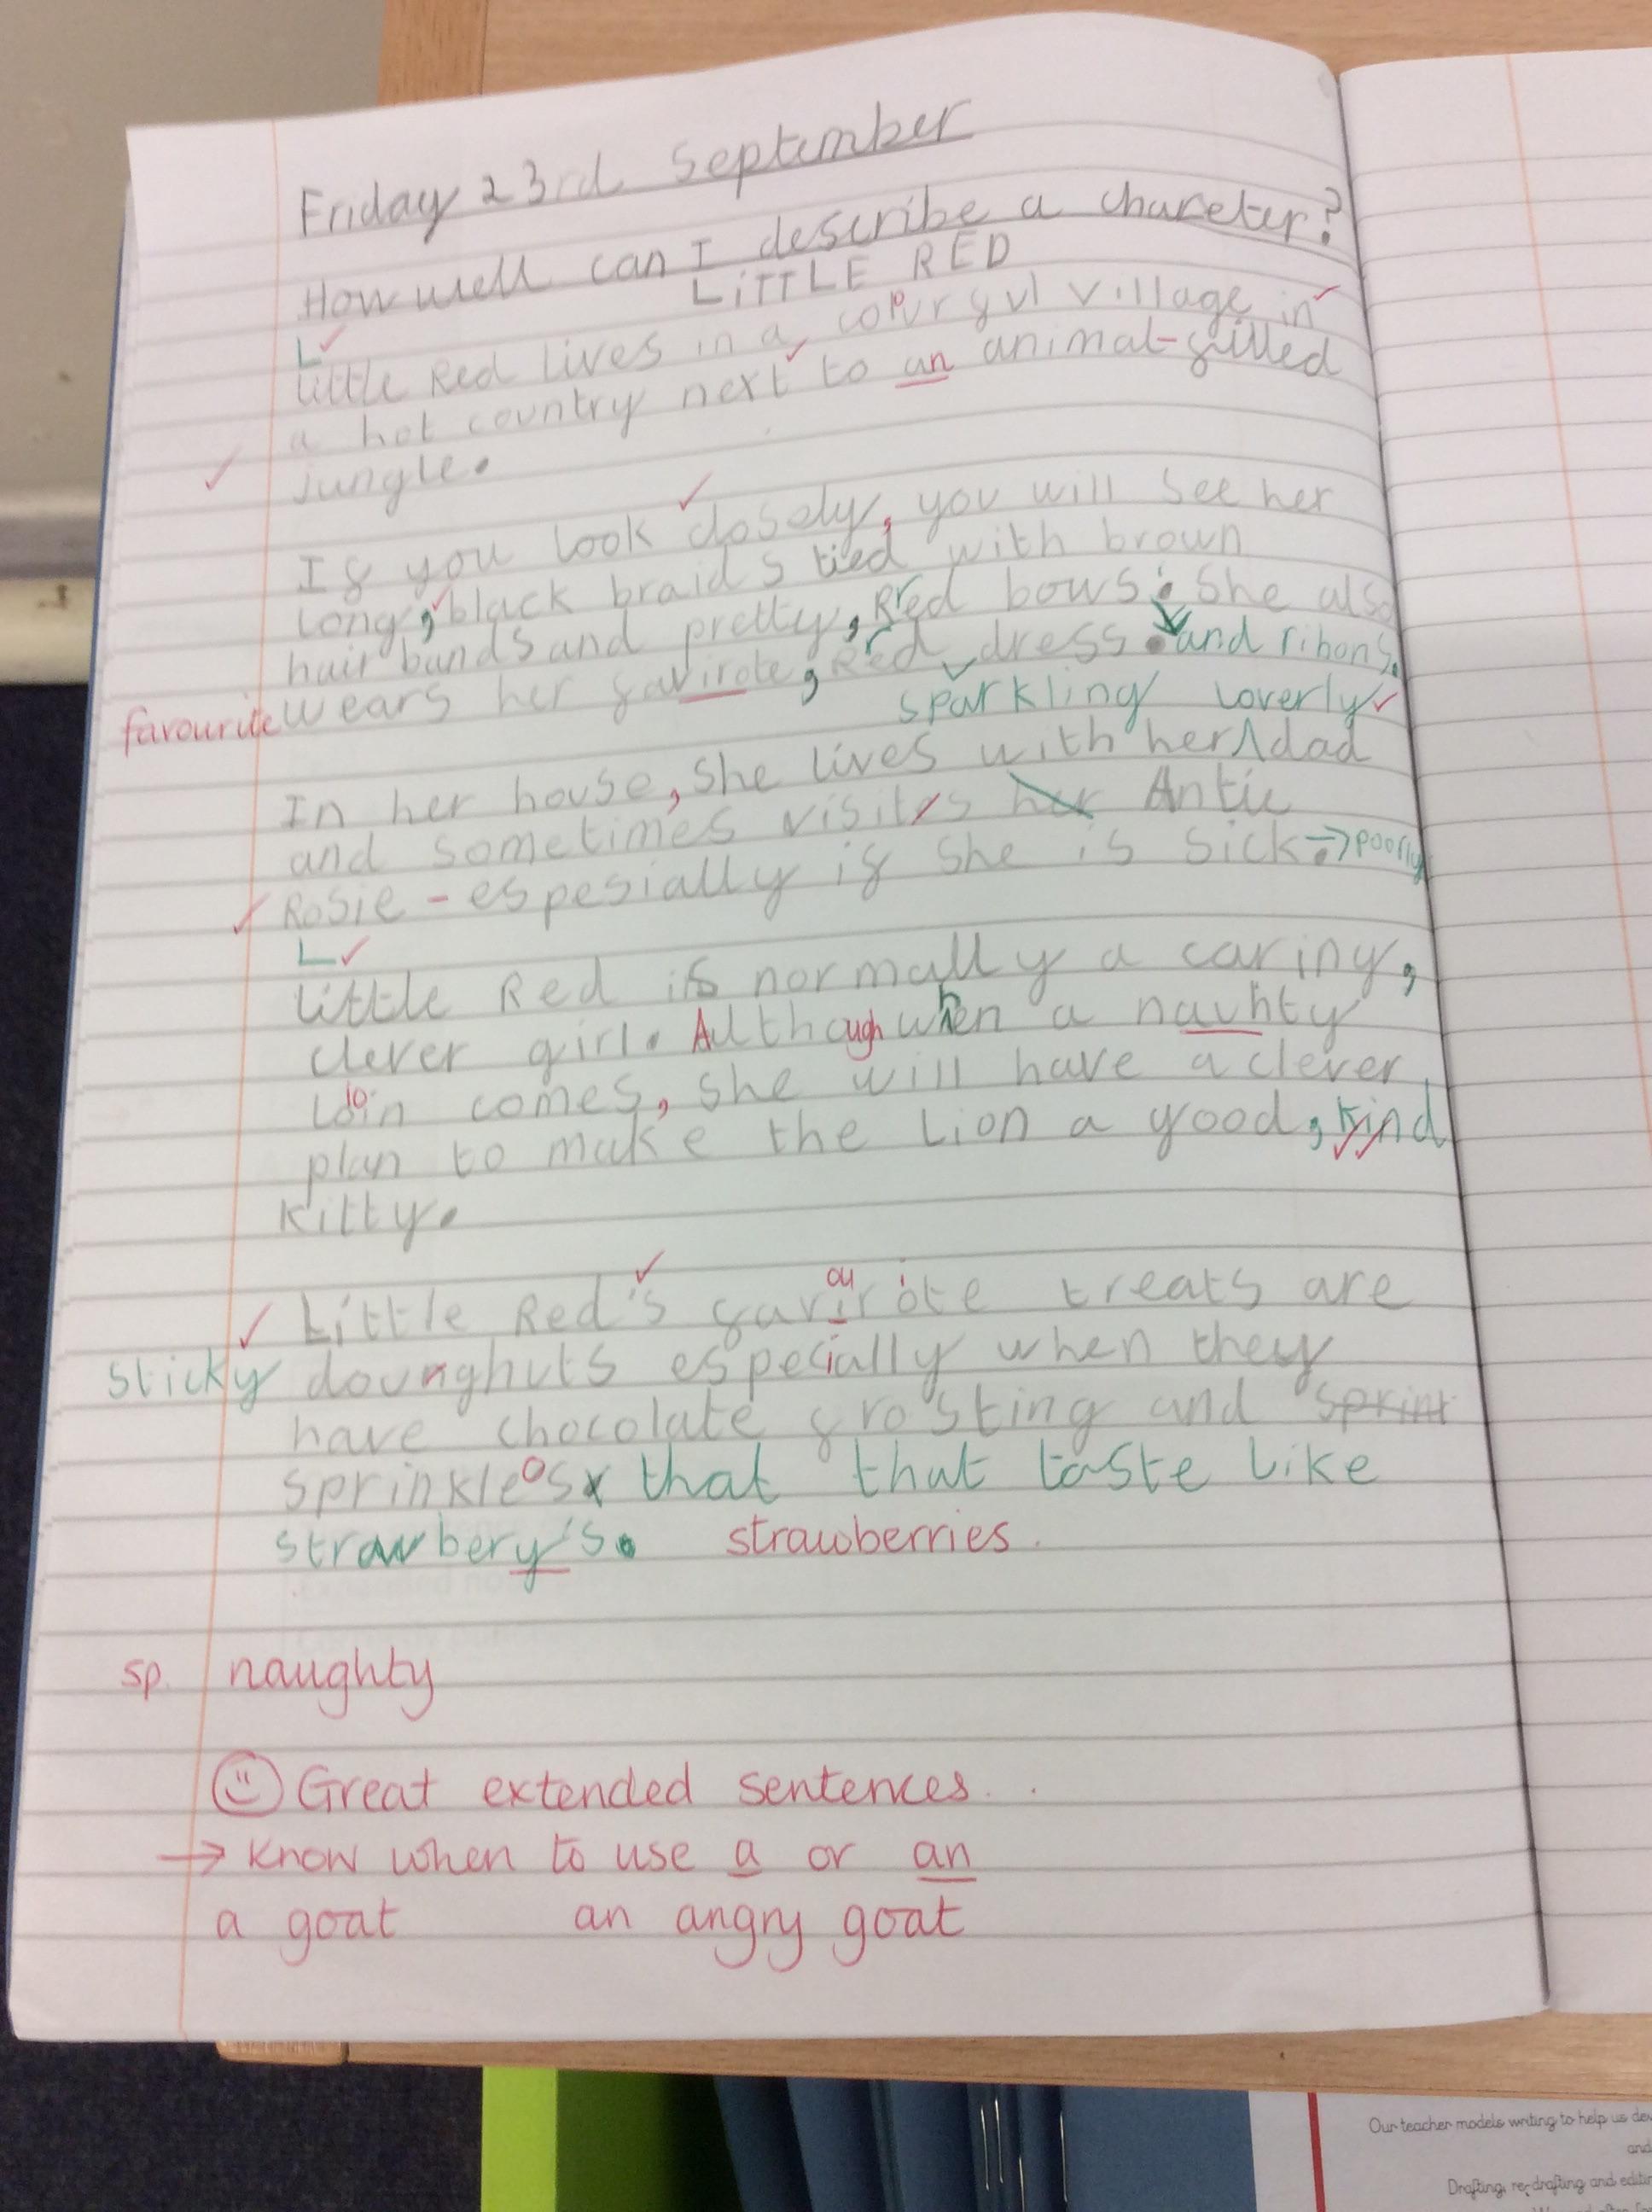 Friday 23rd September
How well can I describe a chareter?
LiTTLE RED
L
little Red lives in a colourful village in
a hot country next to an animal-filled
jungle.
If you look closely, you will see her
long, black braids tied with brown
hair bands and pretty, red bows. She also
favourite wears her favirote, red dress. and ribons.
sparkling loverly
In her house, she lives with her ^ dad
and sometimes visits her Antie
Rosie - espesially if she is sick. → poorly
L
little Red is normally a caring,
clever girl. Although when a nauhty
lion comes, she will have a clever
plan to make the Lion a good, kind
kitty.
Little Red's favirote treats are
ou i
sticky doughnuts especially when they
have chocolate frosting and sprint
sprinkles that that taste like
strawbery's. strawberries.
sp. naughty
Great extended sentences.
→ Know when to use a or an
a goat an angry goat
Our teacher models writing to help us de
and
Drafting, re-drafting and editi